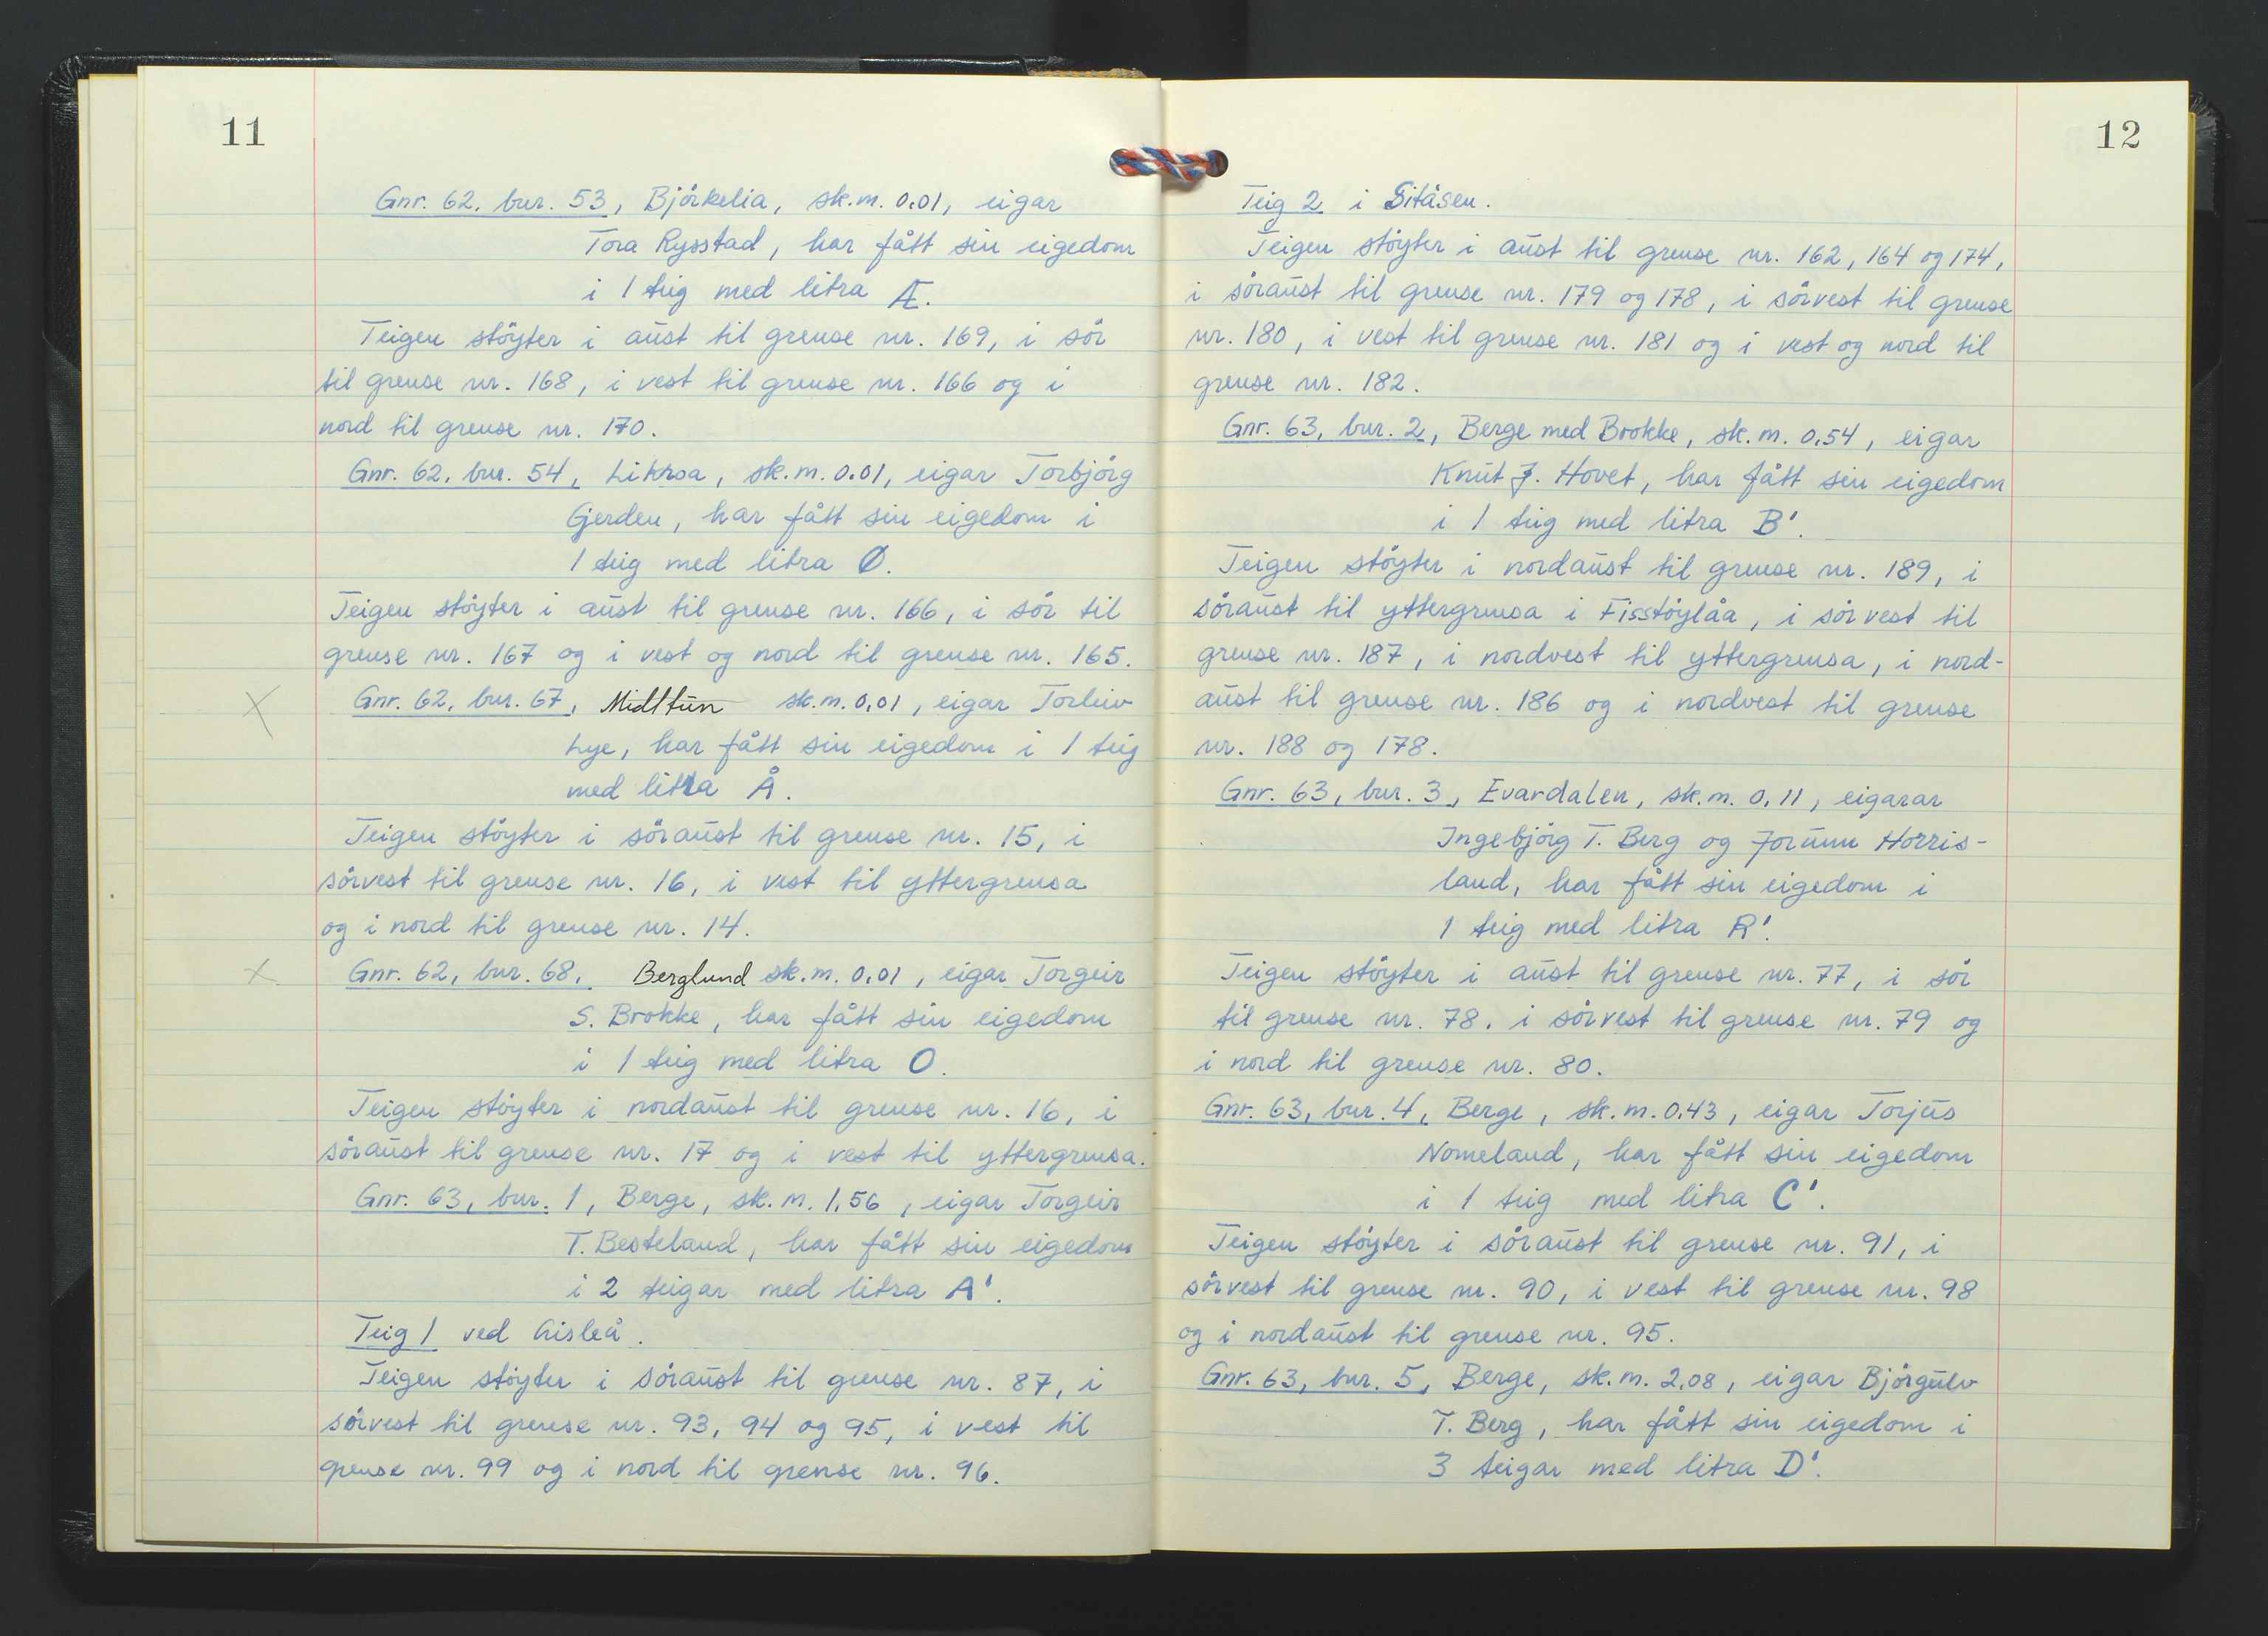 11
Gnr. 62, bnr. 53, Björkelia, sk.m. 0.01, eigar
Tora Rysstad, har fått sin eigedom
i 1 teig med litra Æ.
Teigen stöyter i aust til grense nr. 169, i sör
til grense nr. 168, i vest til grense nr. 166 og i
nord til grense nr. 170.
Gnr. 62, bnr. 54, Likroa, sk.m. 0.01, eigar Torbjörg
Gjerden, har fått sin eigedom i
1 teig med litra Ø.
Teigen stöyter i aust til grense nr. 166, i sör til
grense nr. 167 og i vest og nord til grense nr. 165.
X Gnr. 62, bnr. 67, Midttun sk.m. 0,01, eigar Torleiv
Lye, har fått sin eigedom i 1 teig
med litra Å.
Teigen stöyter i söraust til grense nr. 15, i
sörvest til grense nr. 16, i vest til yttergrensa
og i nord til grense nr. 14.
X Gnr. 62, bnr. 68, Berglund sk.m. 0,01, eigar Torgeir
S. Brokke, har fått sin eigedom
i 1 teig med litra O.
Teigen stöyter i nordaust til grense nr. 16, i
söraust til grense nr. 17 og i vest til yttergrensa.
Gnr. 63, bnr. 1, Berge, sk.m. 1,56, eigar Torgeir
T. Besteland, har fått sin eigedom
i 2 teigar med litra A'.
Teig 1 ved Aisleå.
Teigen stöyter i söraust til grense nr. 87, i
sörvest til grense nr. 93, 94 og 95, i vest til
grense nr. 99 og i nord til grense nr. 96.
12
Teig 2 i Sitåsen.
Teigen stöyter i aust til grense nr. 162, 164 og 174,
i söraust til grense nr. 179 og 178, i sörvest til grense
nr. 180, i vest til grense nr. 181 og i vest og nord til
grense nr. 182.
Gnr. 63, bnr. 2, Berge med Brokke, sk.m. 0,54, eigar
Knut J. Hovet, har fått sin eigedom
i 1 teig med litra B'.
Teigen stöyter i nordaust til grense nr. 189, i
söraust til yttergrensa i Fisstöylåa, i sörvest til
grense nr. 187, i nordvest til yttergrensa, i nord-
aust til grense nr. 186 og i nordvest til grense
nr. 188 og 178.
Gnr. 63, bnr. 3, Evardalen, sk.m. 0,11, eigarar
Ingebjörg T. Berg og Jorunn Horris-
land, har fått sin eigedom i
1 teig med litra R'.
Teigen stöyter i aust til grense nr. 77, i sör
til grense nr. 78, i sörvest til grense nr. 79 og
i nord til grense nr. 80.
Gnr. 63, bnr. 4, Berge, sk.m. 0,43, eigar Torjus
Nomeland, har fått sin eigedom
i 1 teig med litra C'.
Teigen stöyter i söraust til grense nr. 91, i
sörvest til grense nr. 90, i vest til grense nr. 98
og i nordaust til grense nr. 95.
Gnr. 63, bnr. 5, Berge, sk.m. 2,08, eigar Björgulv
T. Berg, har fått sin eigedom i
3 teigar med litra D'.